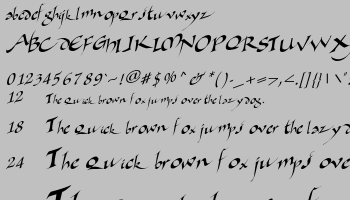 abcdefghijklmnopqrstuvwxyz
ABCDEFGHIJKLMNOPQRSTUVWX
0123456789`~!@#$%^&*()-_+=>,<.[]{}|\"
12 The quick brown fox jumps over the lazy dog.
18 The quick brown fox jumps over the lazy
24 The quick brown fox jumps over